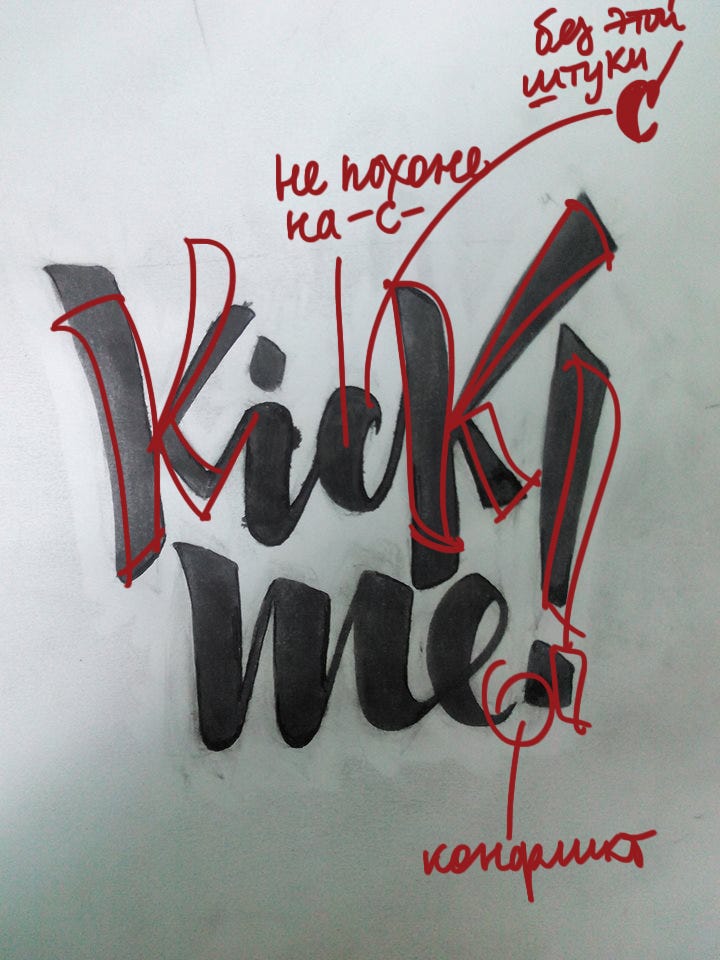 без этой
штуки
c
не похоже
на -с-
Kick!
me
конфликт